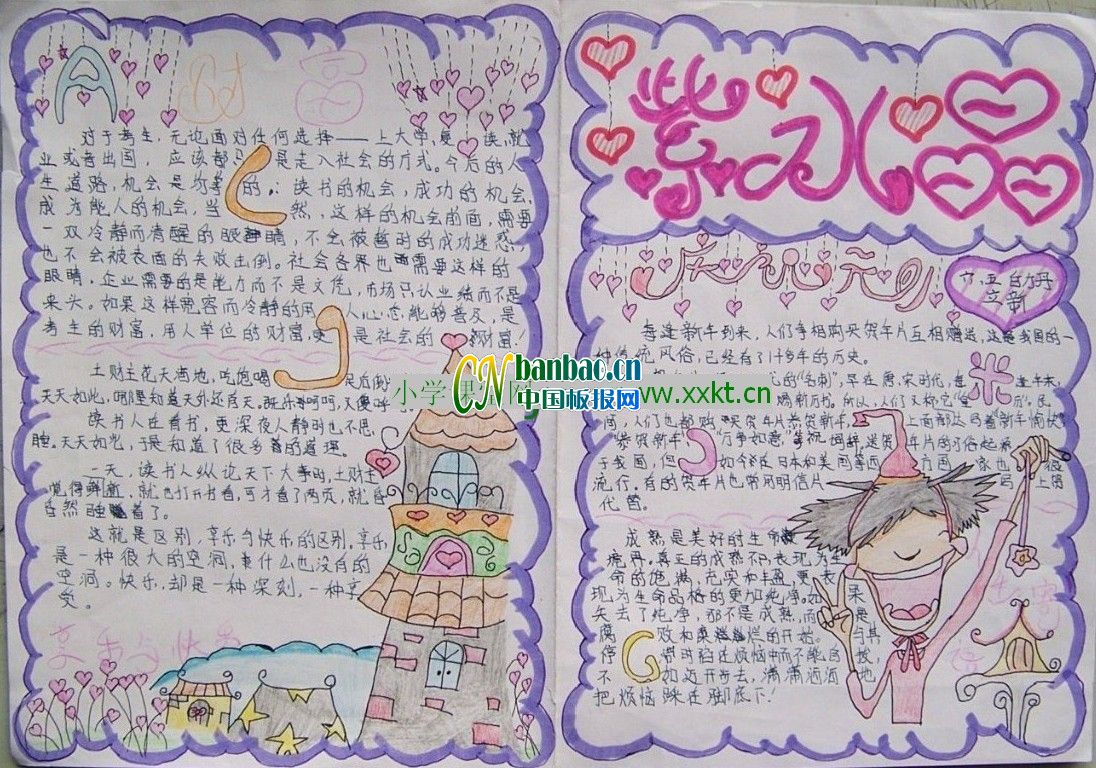 A 财富
对于考生，无论面对任何选择——上大学，复读，就
业或者出国，应该都是走入社会的方式。今后的人
生道路，机会是均等的：读书的机会，成功的机会，
成为能人的机会，当然，这样的机会前面，需要
一双冷静而清醒的眼睛，不会被暂时的成功迷惑
也不会被表面的失败击倒。社会各界也需要这样的
眼睛，企业需要的是能力而不是文凭，市场只认业绩而不是
来头。如果这样宽容而冷静的用人心态能够普及，是
考生的财富，用人单位的财富，更是社会的财富！
土财主花天酒地，吃饱喝
天天如此，哪里知道天外还有天。
读书人在看书，更深夜人静时也不思
睡。天天如此，于是知道了很多书的道理。
一天，读书人纵论天下大事时，土财主
觉得新鲜，就也打开书看，可才看了两页，就昏
昏然睡着了。
这就是区别，享乐与快乐的区别。享乐
是一种很大的空洞，是什么也没有的
空洞。快乐，却是一种深刻，一种享
受。
享乐与快乐
紫水晶
庆祝元旦
六·五 班
每逢新年到来，人们争相购买贺年片互相赠送，这是我国的一
种传统风俗，已经有了1千多年的历史。
的“名刺”，早在唐、宋时代，每逢年末，
间，人们也都购买贺年片恭贺新年，上面都以写着新年愉快
“恭贺新年”“万事如意”等祝词，送贺年片的习俗起源
于我国，但如今在日本和美国等西方国家也很
流行。有的贺年片也常用明信片
代替。
成熟是美好的生命
境界。真正的成熟不只表现为生
命的饱满，充实和丰盈，更表
现为生命品格的更加纯净。如果
失去了纯净，那不是成熟，而是
腐败和糜烂的开始。与其
停滞时陷在烦恼中而不能自拔，
不如迈开步去，潇潇洒洒地
把烦恼踩在脚底下！
小学课件网 www.xxkt.cn
CN banbao.cn
中国板报网